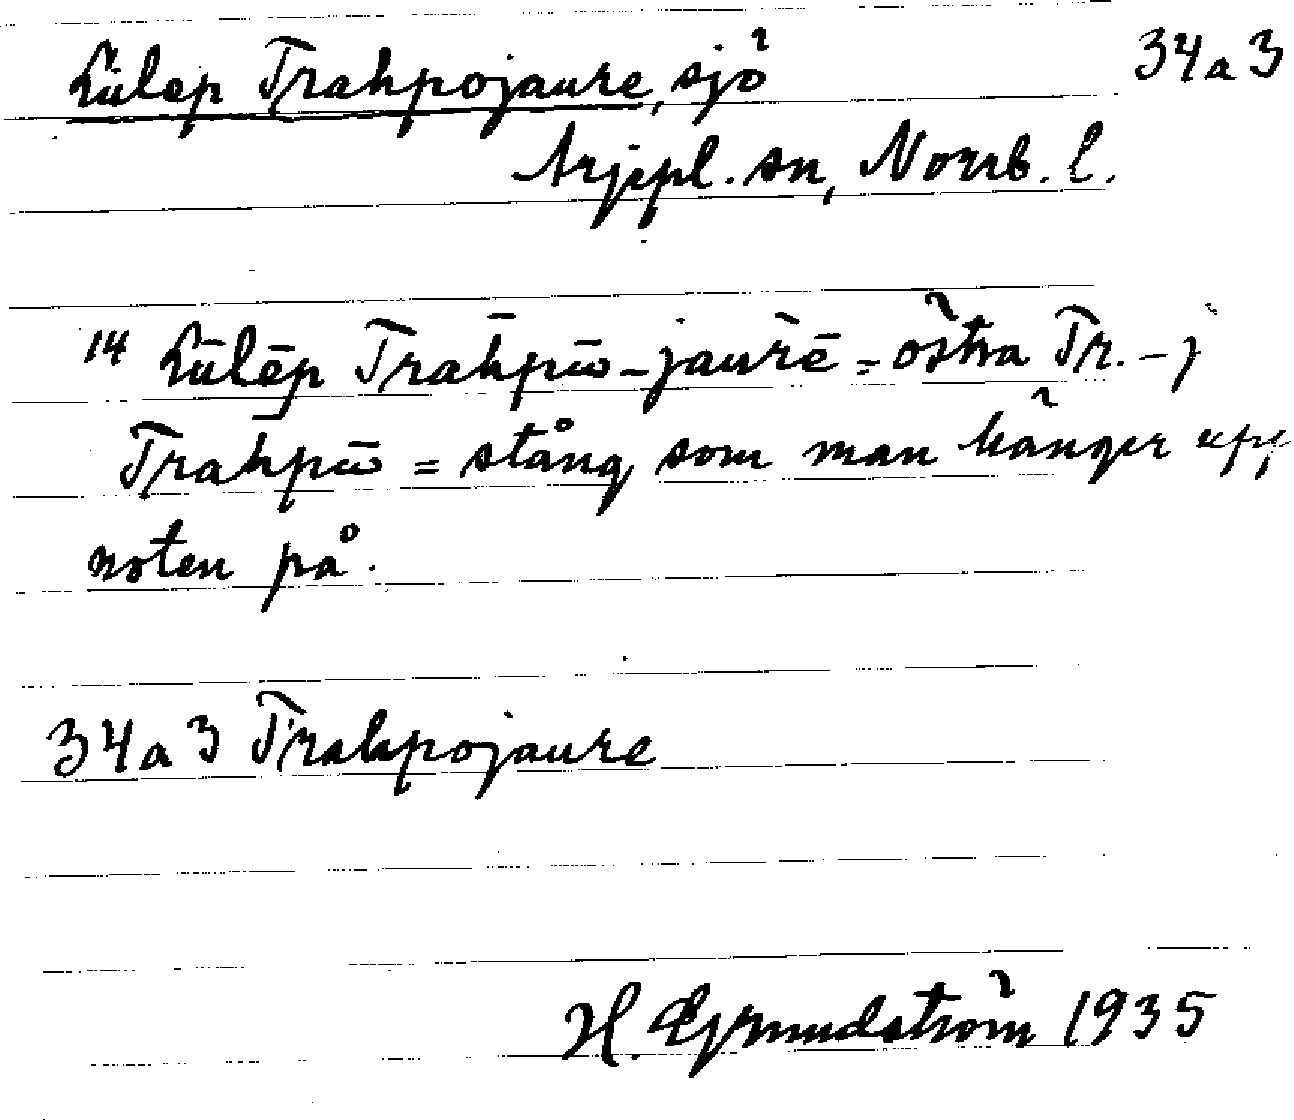 Lulep Trahpojaure, sjö 34a3
Arjepl. sn, Norrb. l.
14 Lūlēp Trahpō-jaurē = östra Tr.-j
Trahpō = stång som man hänger upp
noten på.
34a3 Trahpojaure
H. Grundström 1935